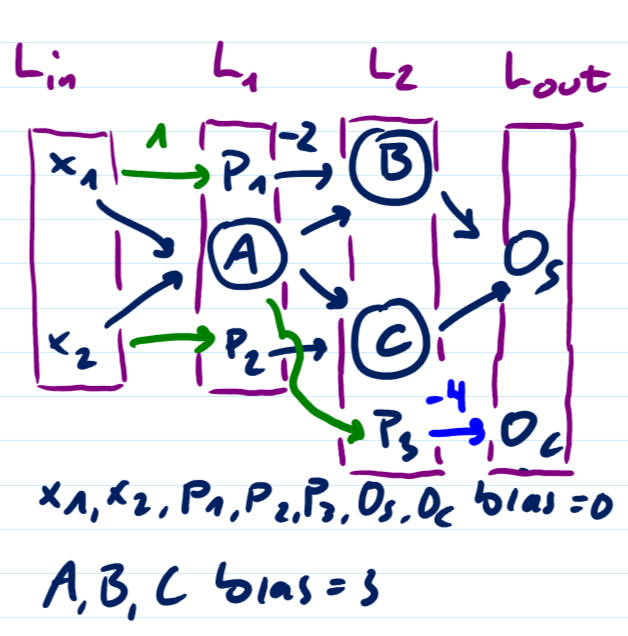 Lin L1 L2 Lout
1 -2
x1 P1 B
A Os
x2 P2 C
-4
P3 Oc
x1, x2, P1, P2, P3, Os, Oc bias = 0
A, B, C bias = 3